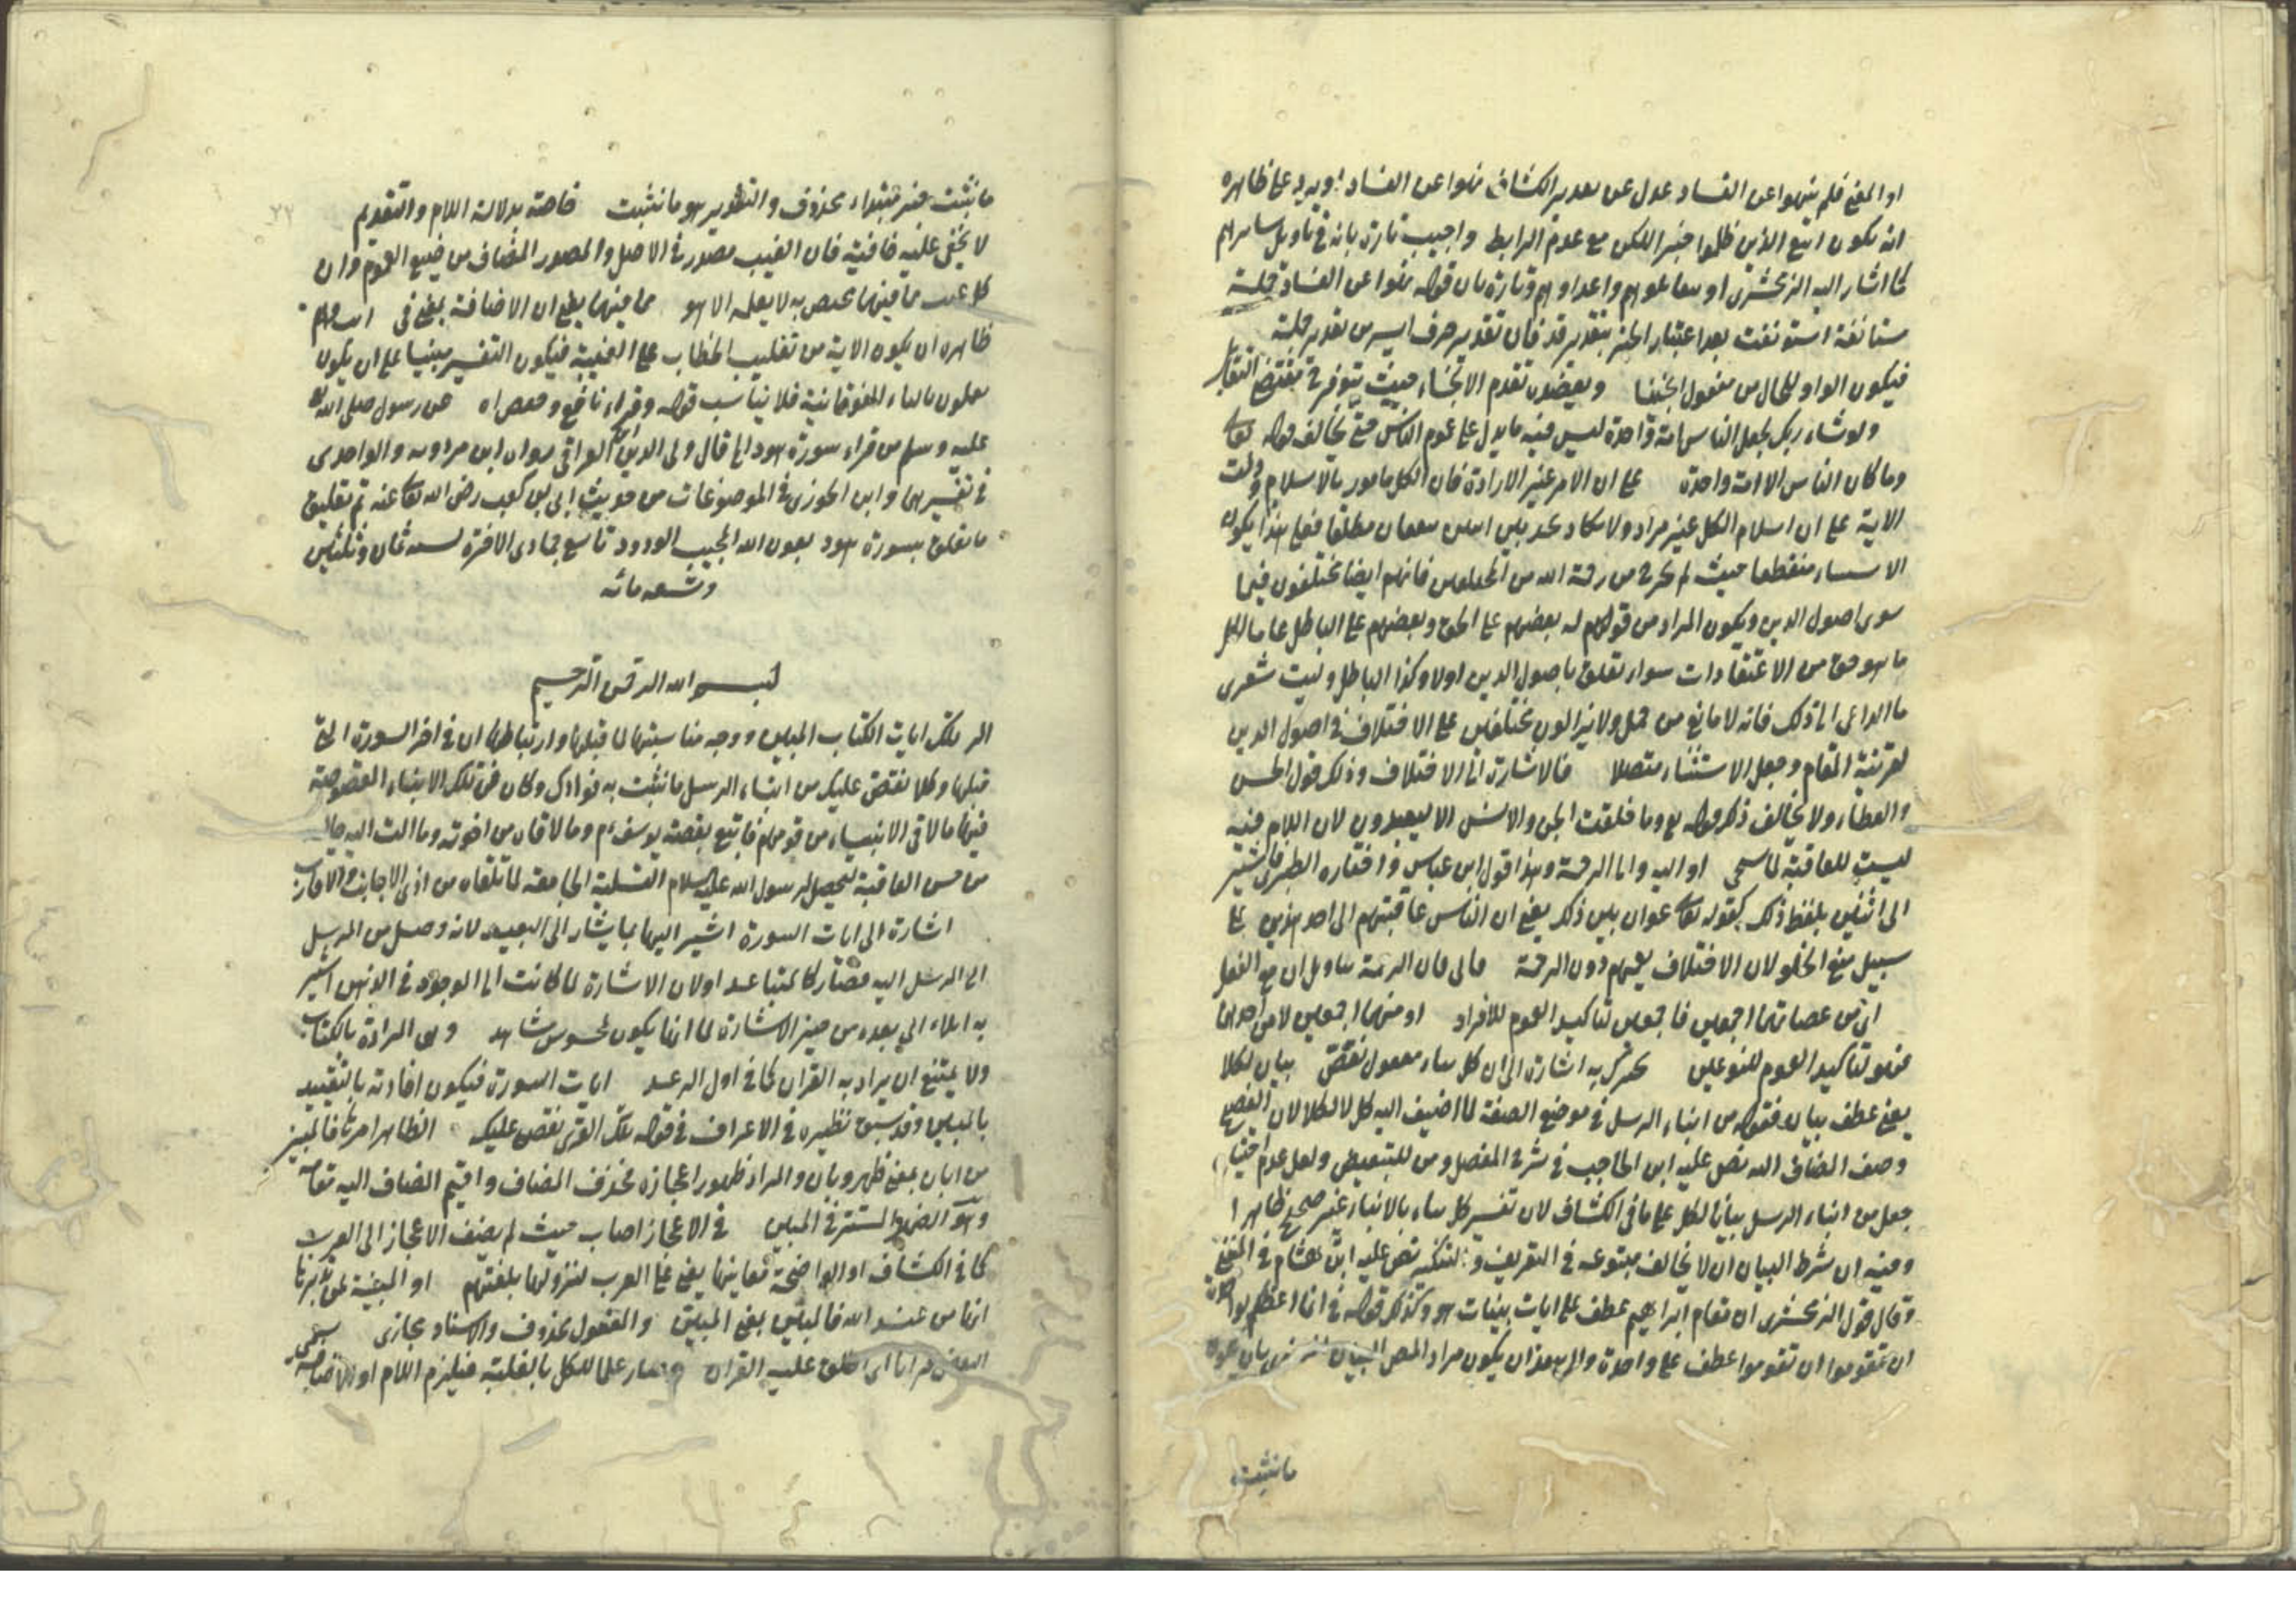 او المعنى فلم ينهوا عن الفساد عدل عن تقدير الكشاف نهوا عن الفساد ويرد على ظاهره
انه يكون اتبع الذين ظلموا خبر اللكن مع عدم الرابط واجيب تارة بانه في تاويل سايرهم
كما اشار اليه الزمخشري او واعداوهم وتارة بان قوله نهوا عن الفساد جملة
مستانفة استونفت بعد اعتبار الخبر بتقدير قد فان تقدير حرف ايسر من تقدير جملة
فيكون الواو للحال من مفعول انجينا ويعضده تقدم الانجاء حيث يتوفر مقتضى التقابل
ولو شاء ربك لجعل الناس امة واحدة ليس فيه ما يدل على عموم الناس حتى يخالف قوله تعالى
وما كان الناس الا امة واحدة على ان الامر غير الارادة فان الكل مامور بالاسلام ودلت
الاية على ان اسلام الكل غير مراد ولا تكاد تجد بين اثنين متفقان مطلقا فعلى هذا يكون
الاستثناء منقطعا حيث لم يخرج من رحمة الله من المختلفين فانهم ايضا مختلفون فيما
سوى اصول الدين ويكون المراد من قولهم له بعضهم على الحق وبعضهم على الباطل عاما لكل
ما هو حق من الاعتقادات سواء تعلق باصول الدين اولا وكذا الباطل وليت شعرى
ما الداعى الى ذلك فانه لا مانع من حمل ولا يزالون مختلفين على الاختلاف في اصول الدين
لقرينة المقام وجعل الاستثناء متصلا فالاشارة الى الاختلاف وذلك قول الحسن
والعطاء ولا يخالف ذكر قوله وما خلقت الجن والانس الا ليعبدون لان اللام فيه
ليست للعاقبة لما سيجى او اليه والى الرحمة وهذا قول ابن عباس واختاره الطبرى فاشير
الى اثنين بلفظ ذلك كقوله تعالى عوان بين ذلك يعنى ان الناس عاقبتهم الى احد هذين على
سبيل منع الخلو لان الاختلاف يعمهم دون الرحمة فان الرحمة بتاويل ان مع الفعل
اى من عصاتهما اجمعين فاجمعين لتاكيد العموم للافراد او منهما اجمعين لا من احدهما
فهو لتاكيد العموم للنوعين نخبرك به اشارة الى ان كل نباء مفعول نقص بيان لكلا
يعنى عطف بيان فقوله من انباء الرسل في موضع الصفة لما اضيف اليه كل لا لكلا لان الفصيح
وصف المضاف اليه نص عليه ابن الحاجب في شرح المفصل ومن للتبعيض ولعل عدم
جعل من انباء الرسل بيانا لكل على ما في الكشاف لان تفسير كل نباء بالانباء غير صحيح ظاهرا
وفيه ان شرط البيان ان لا يخالف متبوعه في التعريف والتنكير نص عليه ابن هشام في المغنى
وقال قول الزمخشرى ان مقام ابراهيم عطف على ايات بينات سهو وكذلك قوله في انما اعظكم بواحدة
ان تقوموا ان تقوموا عطف على واحدة ان يكون مراد المص البيان
ما نثبت
ما نثبت خبر مبتداء محذوف والتقدير هو ما نثبت خاصة بدلالة اللام والتقديم
لا يخفى عليه خافية فان الغيب مصدر في الاصل والمصدر المضاف من صيغ العموم وان
كل غيب ما فيهما مختص به لا يعلمه الا هو مما فيهما يعنى ان الاضافة بمعنى فى
ظاهره ان يكون الاية من تغليب الخطاب على الغيبة فيكون التفسير مبنيا على ان يكون
تعملون بالتاء الفوقانية فلا يناسب قوله وقراء نافع وحفص عن رسول صلى الله
عليه وسلم من قراء سورة هود الخ قال ولى الدين العراقى رواه ابن مردويه والواحدى
فى تفسيرهما وابن الجوزى في الموضوعات من حديث ابى بن كعب رضى الله تعالى عنه تم تعليق
ما تعلق بسورة هود بعون الله المجيب الودود تاسع جمادى الاخرة لسنة ثمان وثلثين
وتسعمائه
بسم الله الرحمن الرحيم
الر تلك ايات الكتاب المبين ووجه مناسبتها لما قبلها وارتباطها ان في اخر السورة التى
قبلها وكلا نقص عليك من انباء الرسل ما نثبت به فؤادك وكان في تلك الانباء المقصوصة
فيها ما لاقى الانبياء من قومهم فاتبع بقصة يوسف وما لاقاه من اخوته وما الت اليه حاله
من حسن العاقبة ليحصل لرسول الله عليه السلام التسلية الجامعة لما تلقاه من اذى الاجانب والاقارب
اشارة الى ايات السورة اشير اليها بما يشار الى البعيد لانه وصل من المرسل
الى المرسل اليه فصار كالمتباعد او لان الاشارة لما كانت الى الموجود في الذهن اشير
به ايماء الى بعده من حيز الاشارة لما انما يكون لمحسوس مشاهد وهى المرادة بالكتاب
ولا يمتنع ان يراد به القران كما فى اول الرعد ايات السورة فيكون افادته بالتقييد
بالمبين وقد سبق نظيره في الاعراف في قوله تلك القرى نقص عليك الظاهر امرها فالمبين
من ابان بمعنى ظهر وبان والمراد ظهور اعجازه فحذف المضاف واقيم المضاف اليه مقامه
وهو الضمير المستتر فى المبين فى الاعجاز اصاب حيث لم يضف الاعجاز الى العرب
كما في الكشاف او الواضحة معانيها يعنى على العرب لنزولها بلغتهم او المبينة لمن تدبرها
انها من عند الله فالمبين بمعنى المبين والمفعول محذوف والاسناد مجازى سمى
البعض قرانا اى اطلق عليه القران وصار علما للكل بالغلبة فيلزم اللام او الاضافة